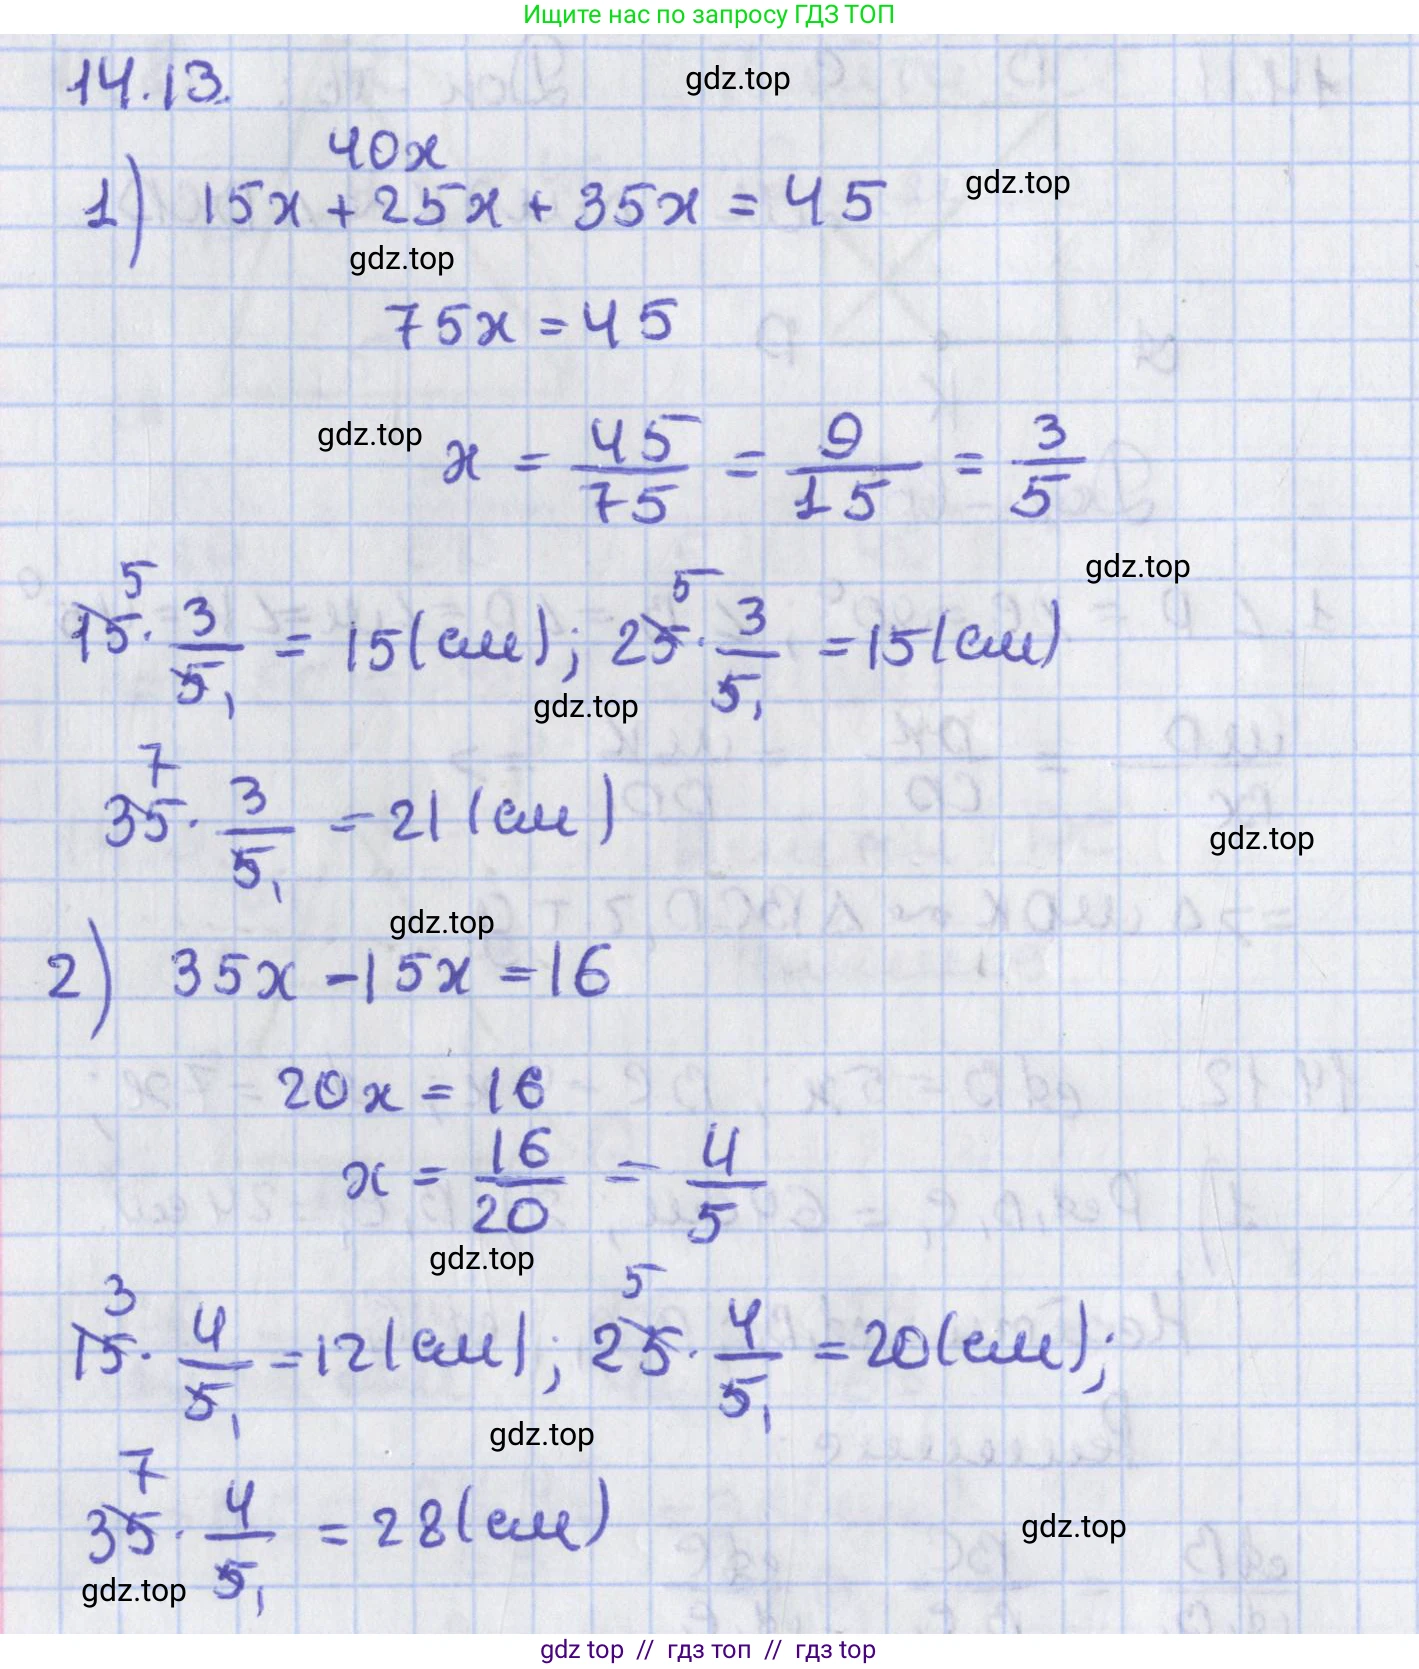 Ищите нас по запросу ГДЗ ТОП
14.13.
gdz.top
40x
1) 15x + 25x + 35x = 45
gdz.top
gdz.top
75x = 45
gdz.top
x = 45/75 = 9/15 = 3/5
gdz.top
5 5
15 · 3/5 1 = 15 (см); 25 · 3/5 1 = 15 (см)
gdz.top
7
35 · 3/5 1 = 21 (см)
gdz.top
gdz.top
2) 35x - 15x = 16
20x = 16
x = 16/20 = 4/5
gdz.top
3 5
15 · 4/5 1 = 12 (см); 25 · 4/5 1 = 20 (см);
gdz.top
7
35 · 4/5 1 = 28 (см)
gdz.top
gdz.top
gdz top // гдз топ // гдз top